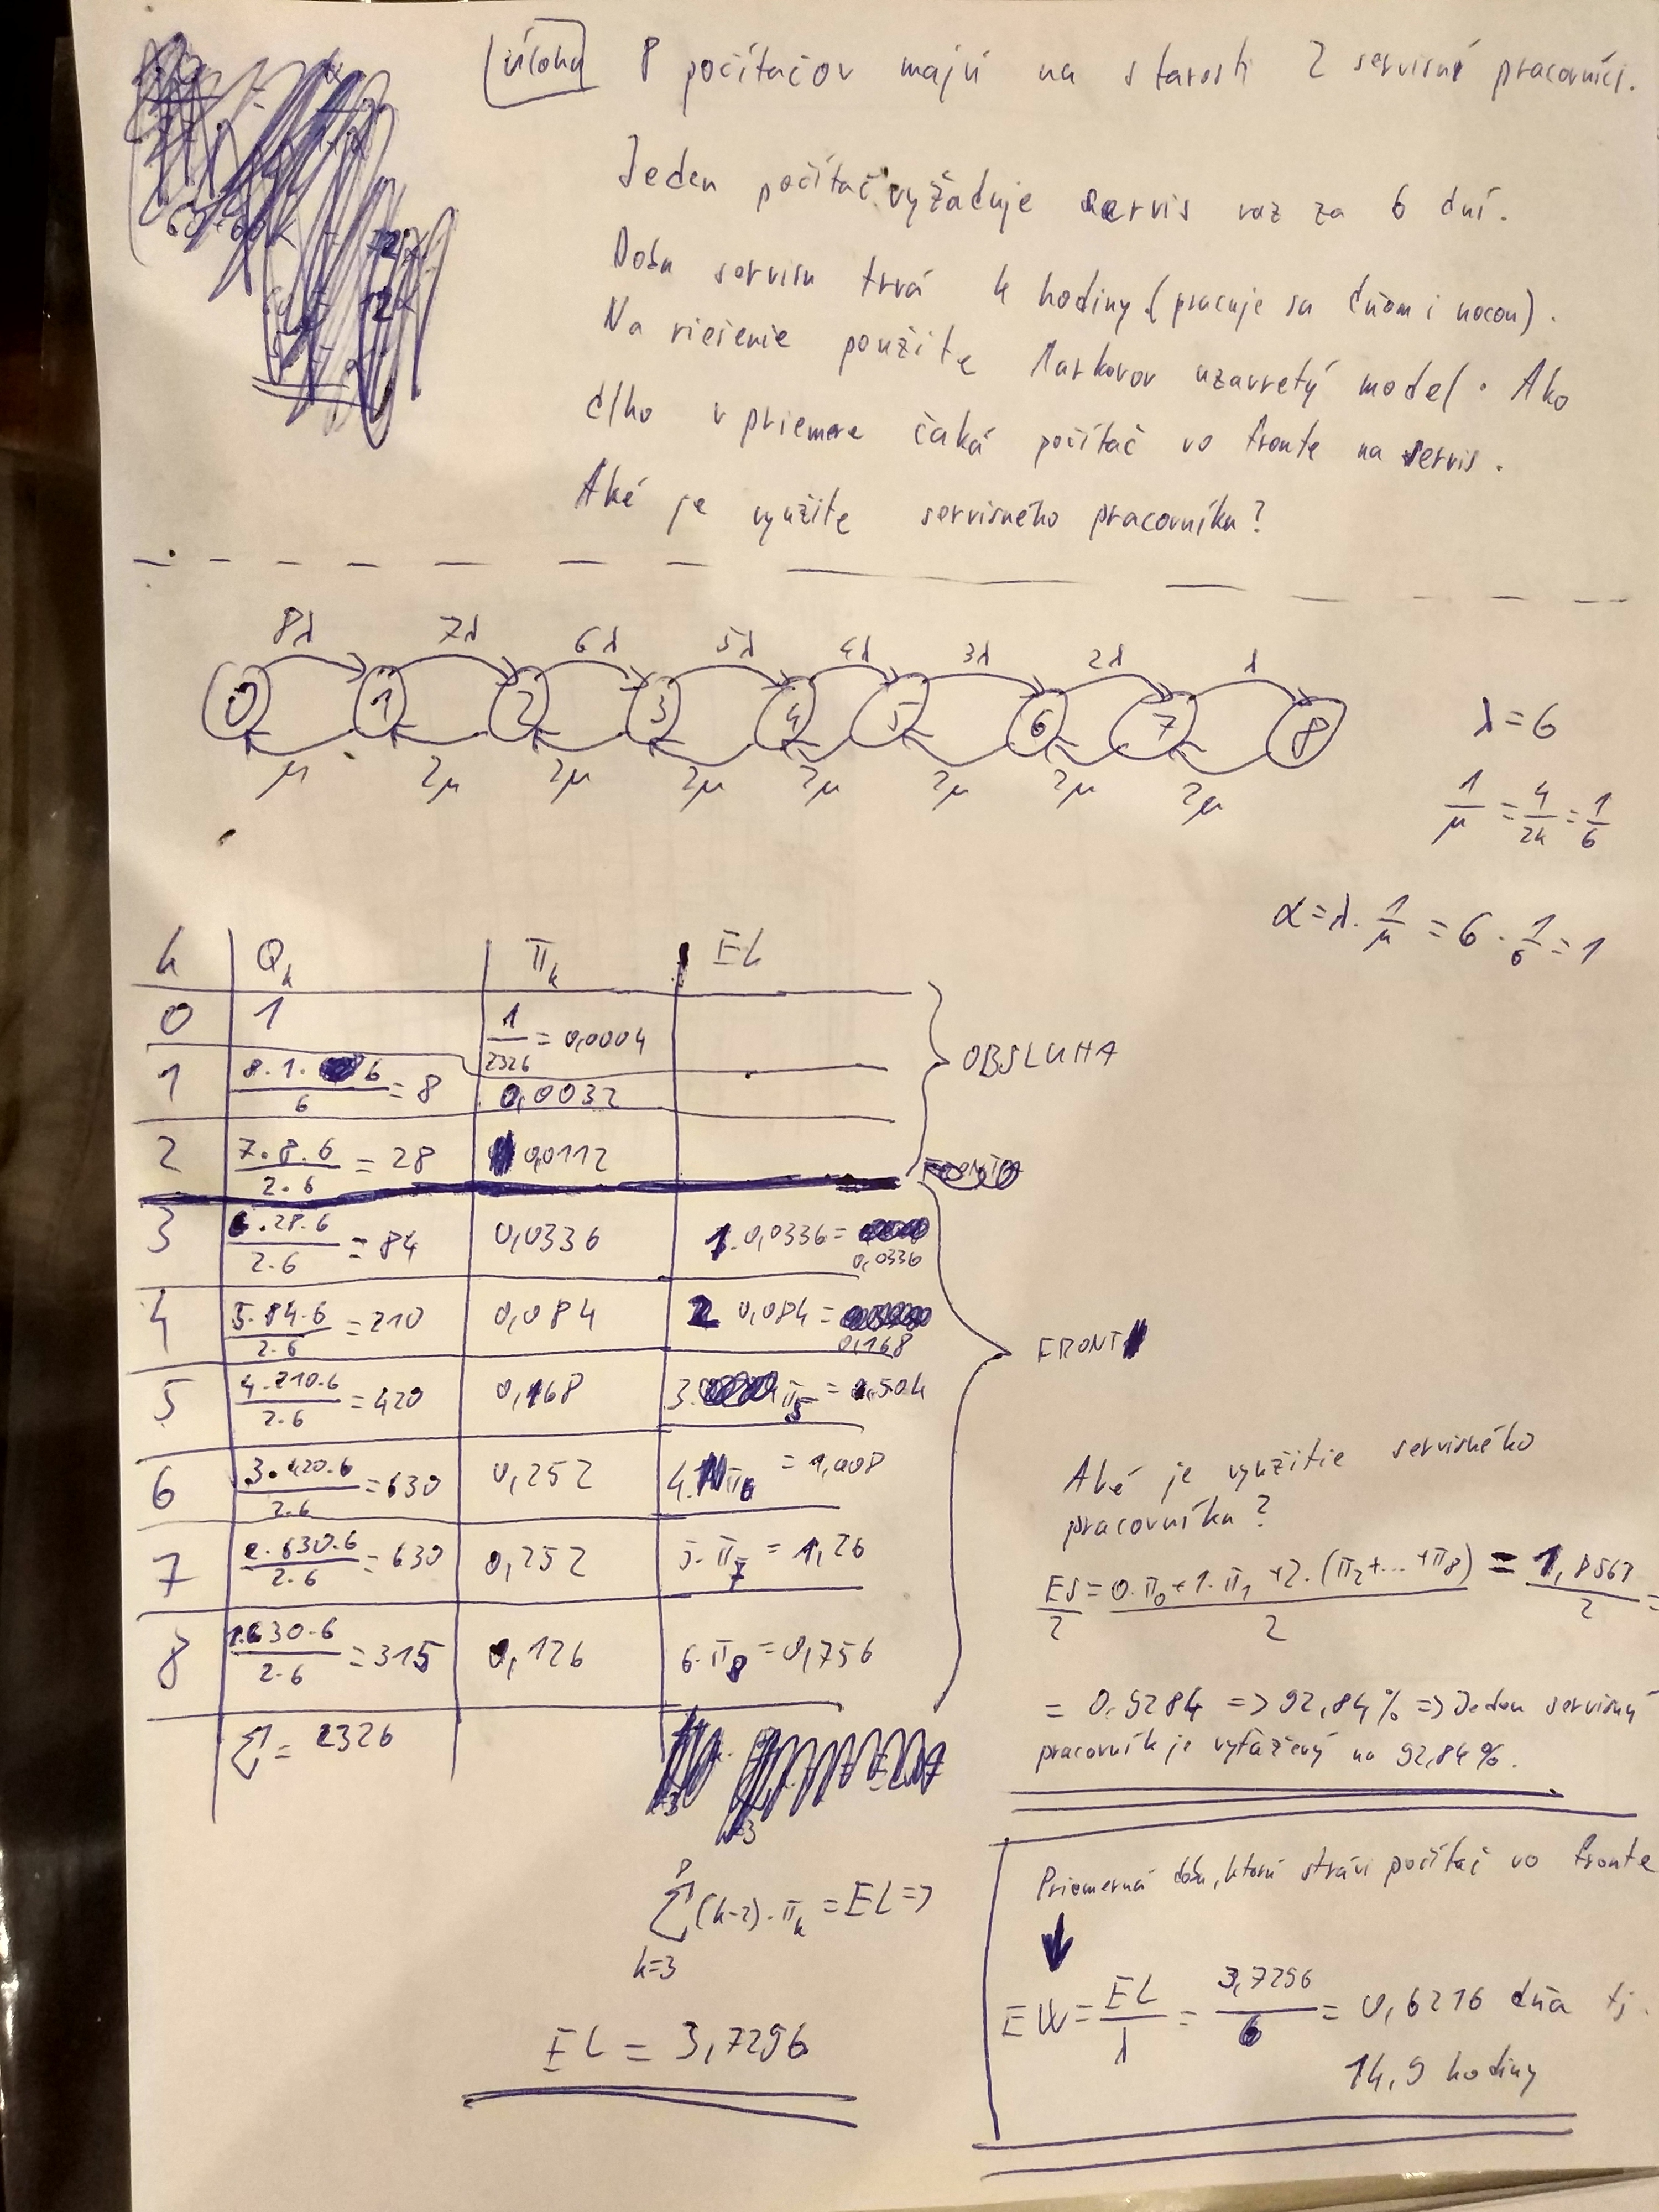 Úloha 8 počítačov majú na starosti 2 servisní pracovníci.
Jeden počítač vyžaduje servis raz za 6 dní.
Doba servisu trvá 4 hodiny (pracuje sa dňom i nocou).
Na riešenie použite Markovov uzavretý model. Ako
dlho v priemere čaká počítač vo fronte na servis.
Aké je využite servisného pracovníka?
8λ 7λ 6λ 5λ 4λ 3λ 2λ λ
0 1 2 3 4 5 6 7 8
μ 2μ 2μ 2μ 2μ 2μ 2μ 2μ
λ=6
1/μ = 4/24 = 1/6
α = λ · 1/μ = 6 · 1/6 = 1
k Qk πk EL
0 1 1/2326 = 0,0004
1 8.1.6/6 = 8 0,0032
2 7.8.6/2.6 = 28 0,0112
OBSLUHA
3 6.28.6/2.6 = 84 0,0336 1.0,0336 = 0,0336
4 5.84.6/2.6 = 210 0,084 2 0,084 = 0,168
5 4.210.6/2.6 = 420 0,168 3.π5 = 0,504
6 3.420.6/2.6 = 630 0,252 4.π6 = 1,008
7 2.630.6/2.6 = 630 0,252 5.π7 = 1,26
8 1.630.6/2.6 = 315 0,126 6.π8 = 0,756
FRONT
Σ = 2326
Σ k=3 8 (k-2).πk = EL =>
EL = 3,7296
Aké je využitie servisného
pracovníka?
ES/2 = 0.π0+1.π1+2.(π2+...+π8)/2 = 1,8567/2 =
= 0,9284 => 92,84% => Jeden servisný
pracovník je vyťažený na 92,84%.
Priemerná doba, ktorú strávi počítač vo fronte
EW = EL/λ = 3,7296/6 = 0,6216 dňa tj.
14,9 hodiny